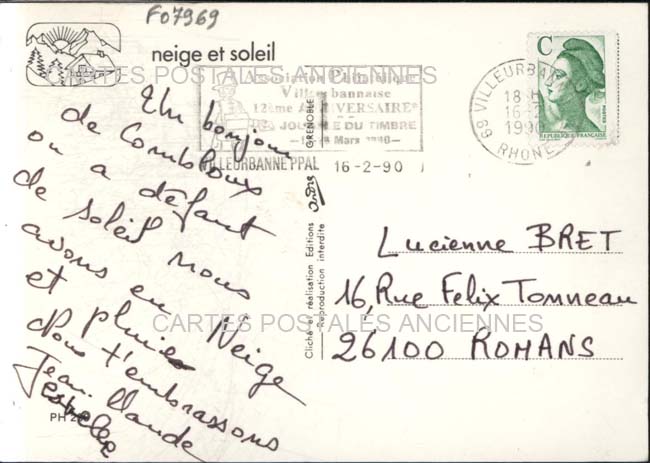 F07969
neige et soleil
CARTES POSTALES ANCIENNES
Association Philatélique
Villeurbannaise
12ème ANNIVERSAIRE
JOURNÉE DU TIMBRE
Mars 1990
VILLEURBANNE PPAL 16-2-90
C
RÉPUBLIQUE FRANÇAISE
POSTES
69 VILLEURBANNE
18 H
16-2
1990
RHONE
Un bonjour
de Combloux
ou a défaut
de soleil nous
avons eu Neige
et pluie
Nous t'embrassons
Jean Claude
PH 2
Cliché et réalisation Editions André GRENOBLE
Reproduction interdite
Lucienne BRET
16, Rue Felix Tonneau
26100 ROMANS
CARTES POSTALES ANCIENNES